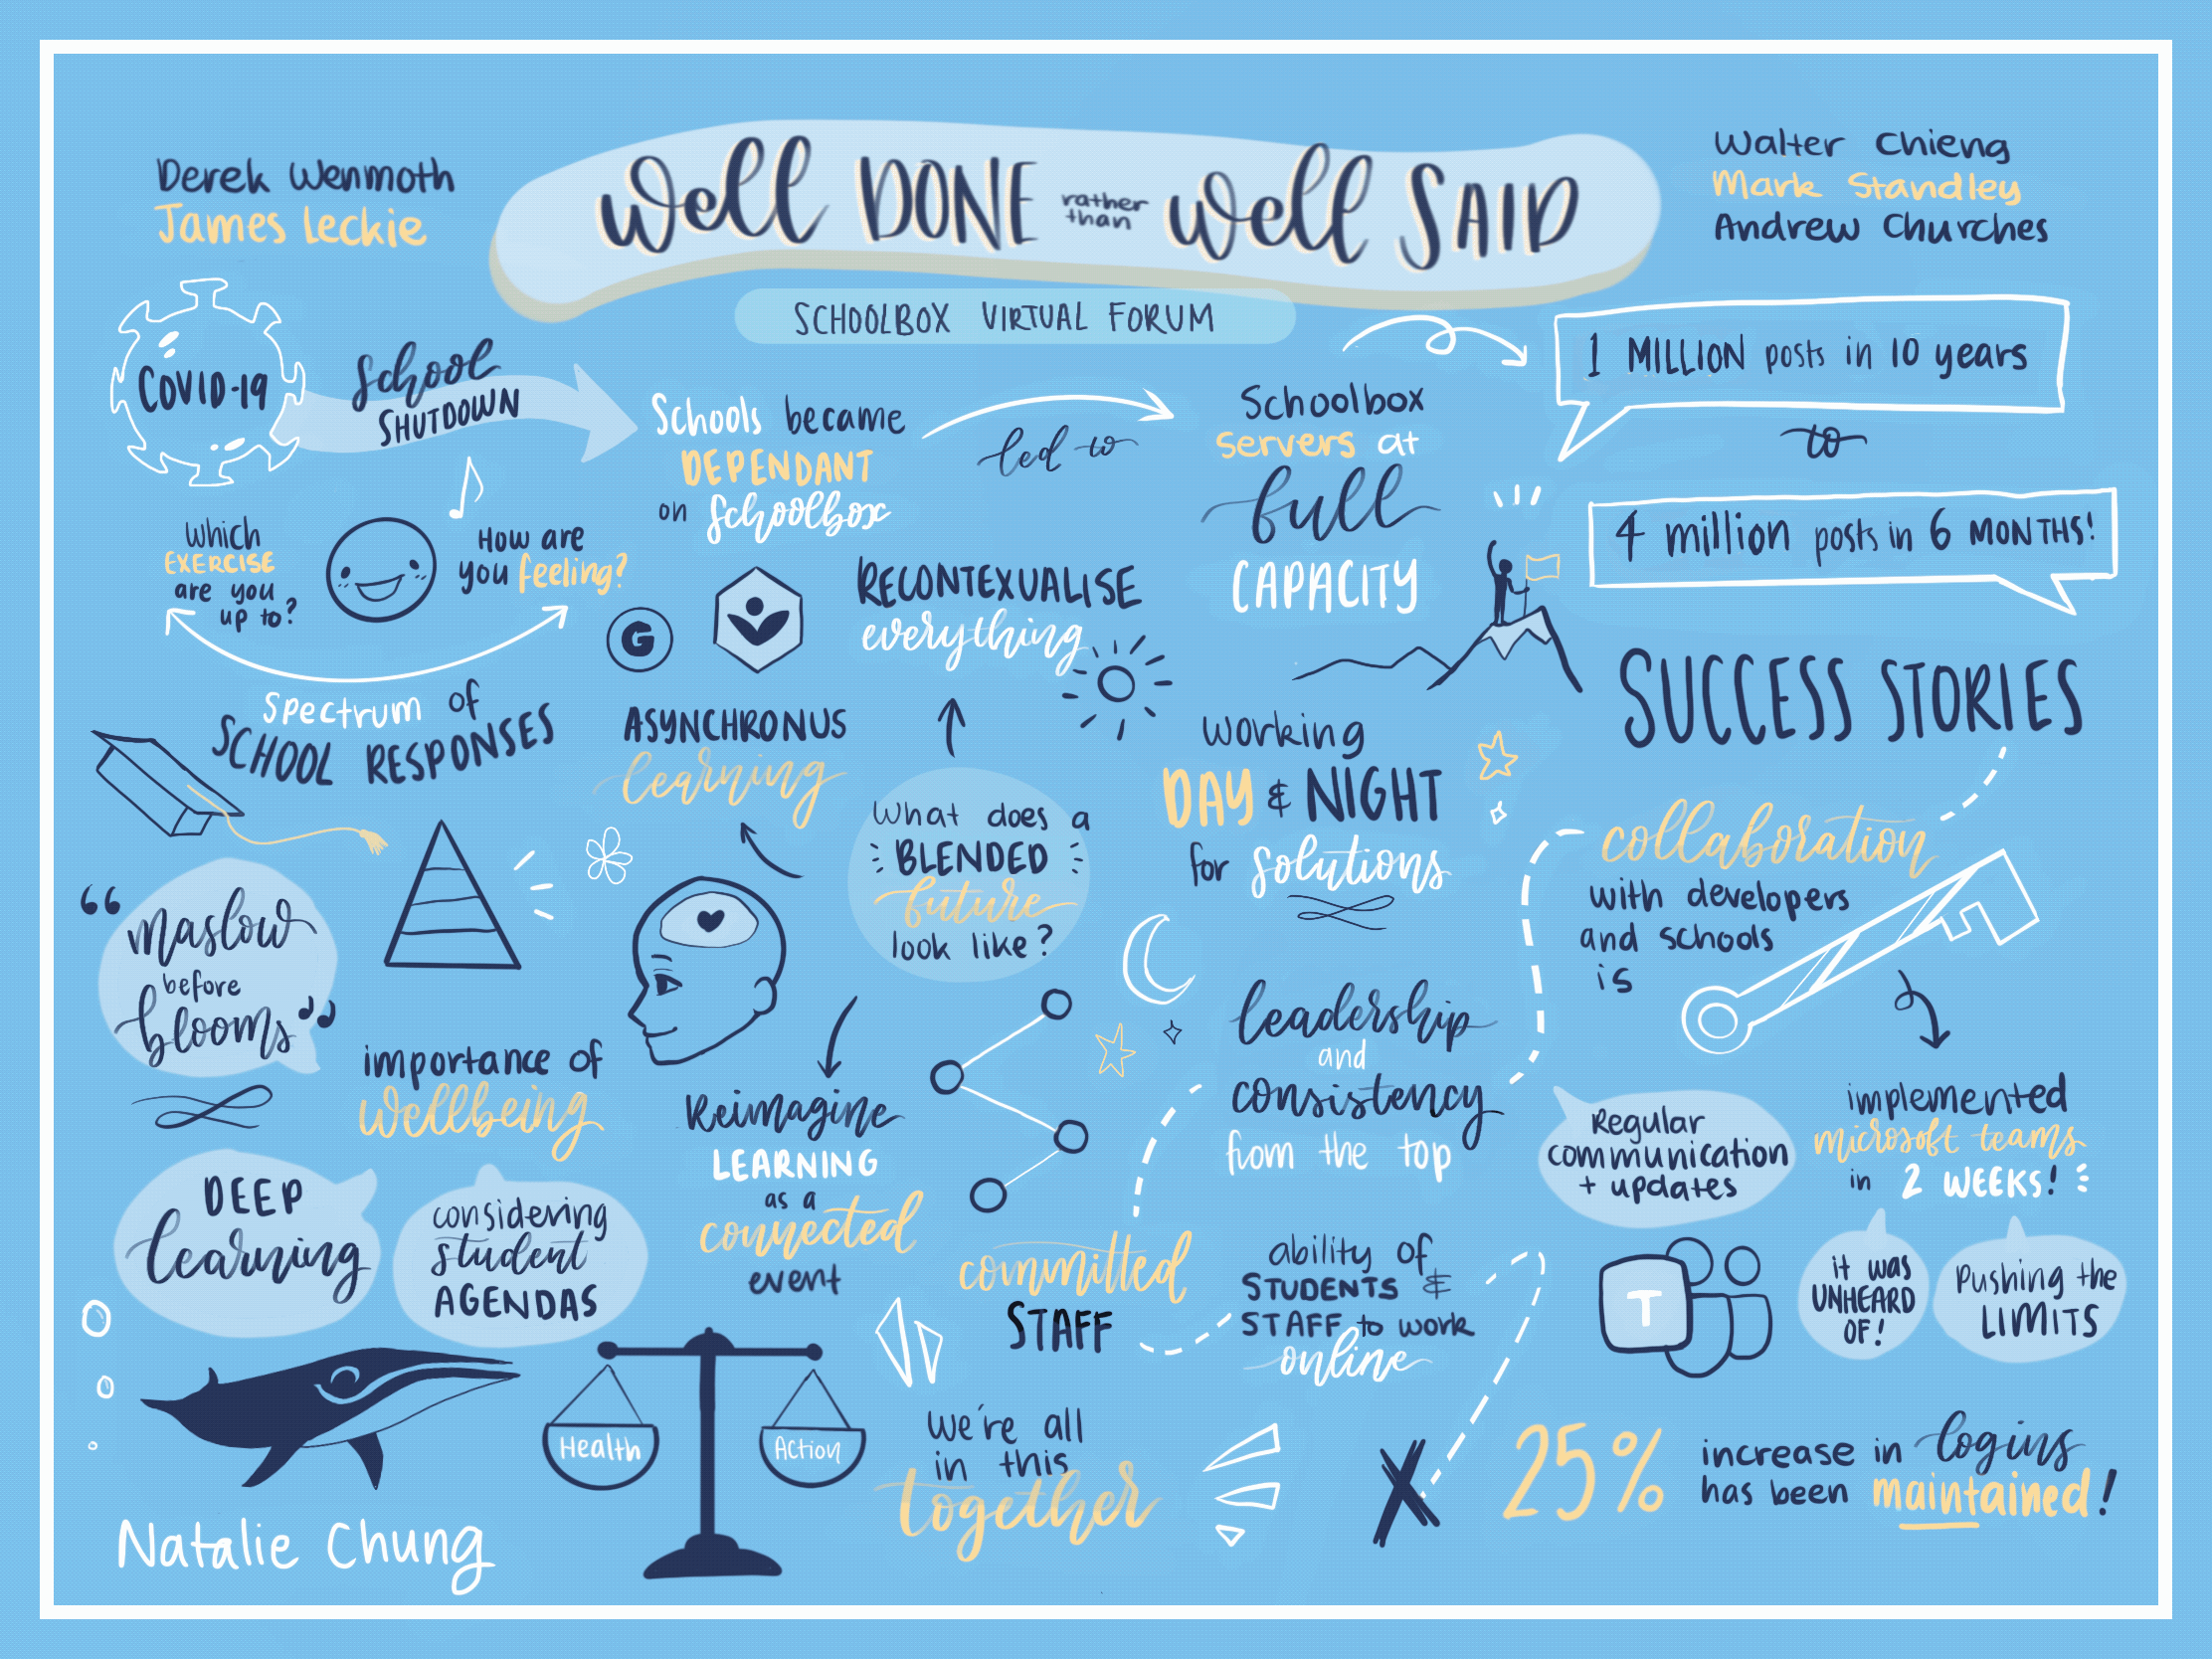 Derek Wenmoth
James Leckie
Well DONE rather than Well SAID
SCHOOLBOX VIRTUAL FORUM
Walter Chieng
Mark Standley
Andrew Churches
COVID-19
School
SHUTDOWN
Schools became
DEPENDANT
on Schoolbox
led to
Schoolbox
servers at
full
CAPACITY
1 MILLION posts in 10 years
to
4 million posts in 6 MONTHS!
Which
EXERCISE
are you
up to?
How are
you feeling?
Spectrum of
SCHOOL RESPONSES
G
RECONTEXUALISE
everything
ASYNCHRONUS
learning
What does a
BLENDED
future
look like?
Working
DAY & NIGHT
for solutions
SUCCESS STORIES
collaboration
with developers
and schools
is
“maslow
before
blooms”
importance of
wellbeing
DEEP
learning
considering
student
AGENDAS
Reimagine
LEARNING
as a
connected
event
leadership
and
consistency
from the top
committed
STAFF
ability of
STUDENTS &
STAFF to work
online
Regular
communication
+ updates
implemented
microsoft teams
in 2 WEEKS!
T
it was
UNHEARD
OF!
Pushing the
LIMITS
Health
Action
we're all
in this
together
25% increase in logins
has been maintained!
Natalie Chung